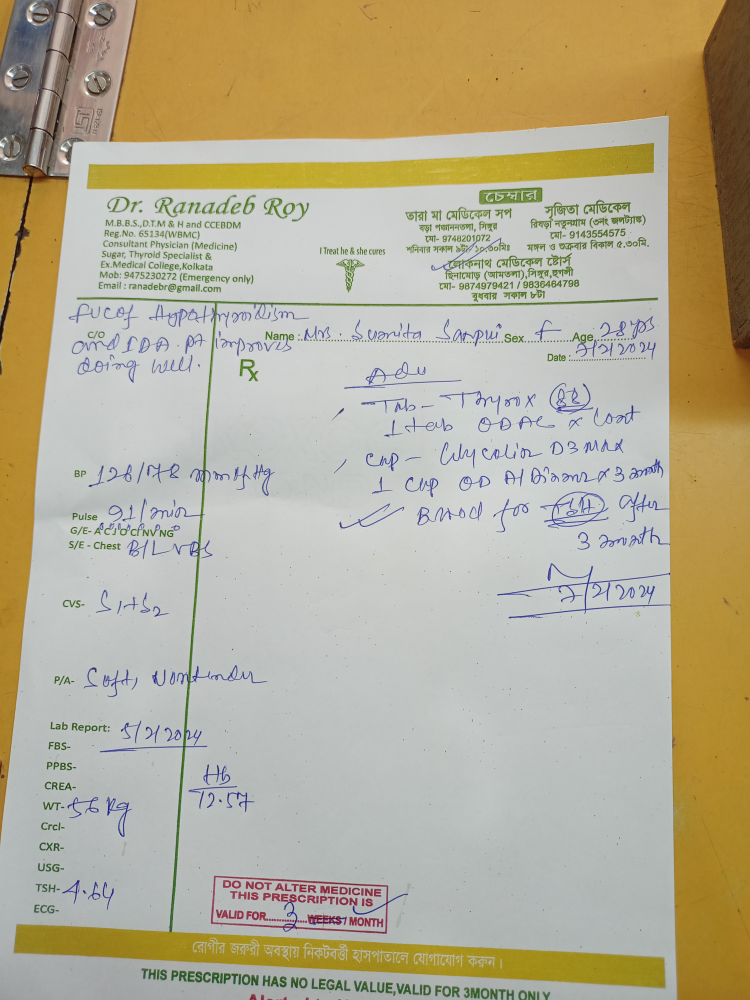 Dr. Ranadeb Roy
M.B.B.S.,D.T.M & H and CCEBDM
Reg.No. 65134(WBMC)
Consultant Physician (Medicine)
Sugar, Thyroid Specialist &
Ex.Medical College,Kolkata
Mob: 9475230272 (Emergency only)
Email : ranadebr@gmail.com
I Treat he & she cures
চেম্বার
তারা মা মেডিকেল সপ
বড়া পঞ্চাননতলা, সিঙ্গুর
মো- 9748201072
শনিবার সকাল ৯টা
সৃজিতা মেডিকেল
রিষড়া নতুনগ্রাম (৩নং জলট্যাঙ্ক)
মো- 9143554575
মঙ্গল ও শুক্রবার বিকাল ৫.৩০মি.
লোকনাথ মেডিকেল ষ্টোর্স
ছিনামোড় (আমতলা),সিঙ্গুর,হুগলী
মো- 9874979421 / 9836464798
বুধবার সকাল ৮টা
FUC of Hypothyroidism
and IDA. Pt improves
doing well.
C/O
Name : Mrs. Sumita Sex F Age 28 yrs
Date : 7/2/2024
Rx
Adv
Tab - Thyrox 88
1 tab OD AC x Cont
Cap - D3 Max
1 Cap OD A/Dinner x 3 month
Blood for TSH after
3 month
7/2/2024
BP 126/78 mm of Hg
Pulse 91/min
G/E- A°C°J°O°CI°NV°NG°
S/E - Chest B/L VBS
CVS- S1+S2
P/A- Soft, Nontender
Lab Report: 5/2/2024
FBS-
PPBS-
CREA-
Hb
12.57
WT- 56 Kg
Crcl-
CXR-
USG-
TSH- 4.64
ECG-
DO NOT ALTER MEDICINE
THIS PRESCRIPTION IS
VALID FOR 3 WEEKS / MONTH
রোগীর জরুরী অবস্থায় নিকটবর্ত্তী হাসপাতালে যোগাযোগ করুন।
THIS PRESCRIPTION HAS NO LEGAL VALUE,VALID FOR 3MONTH ONLY